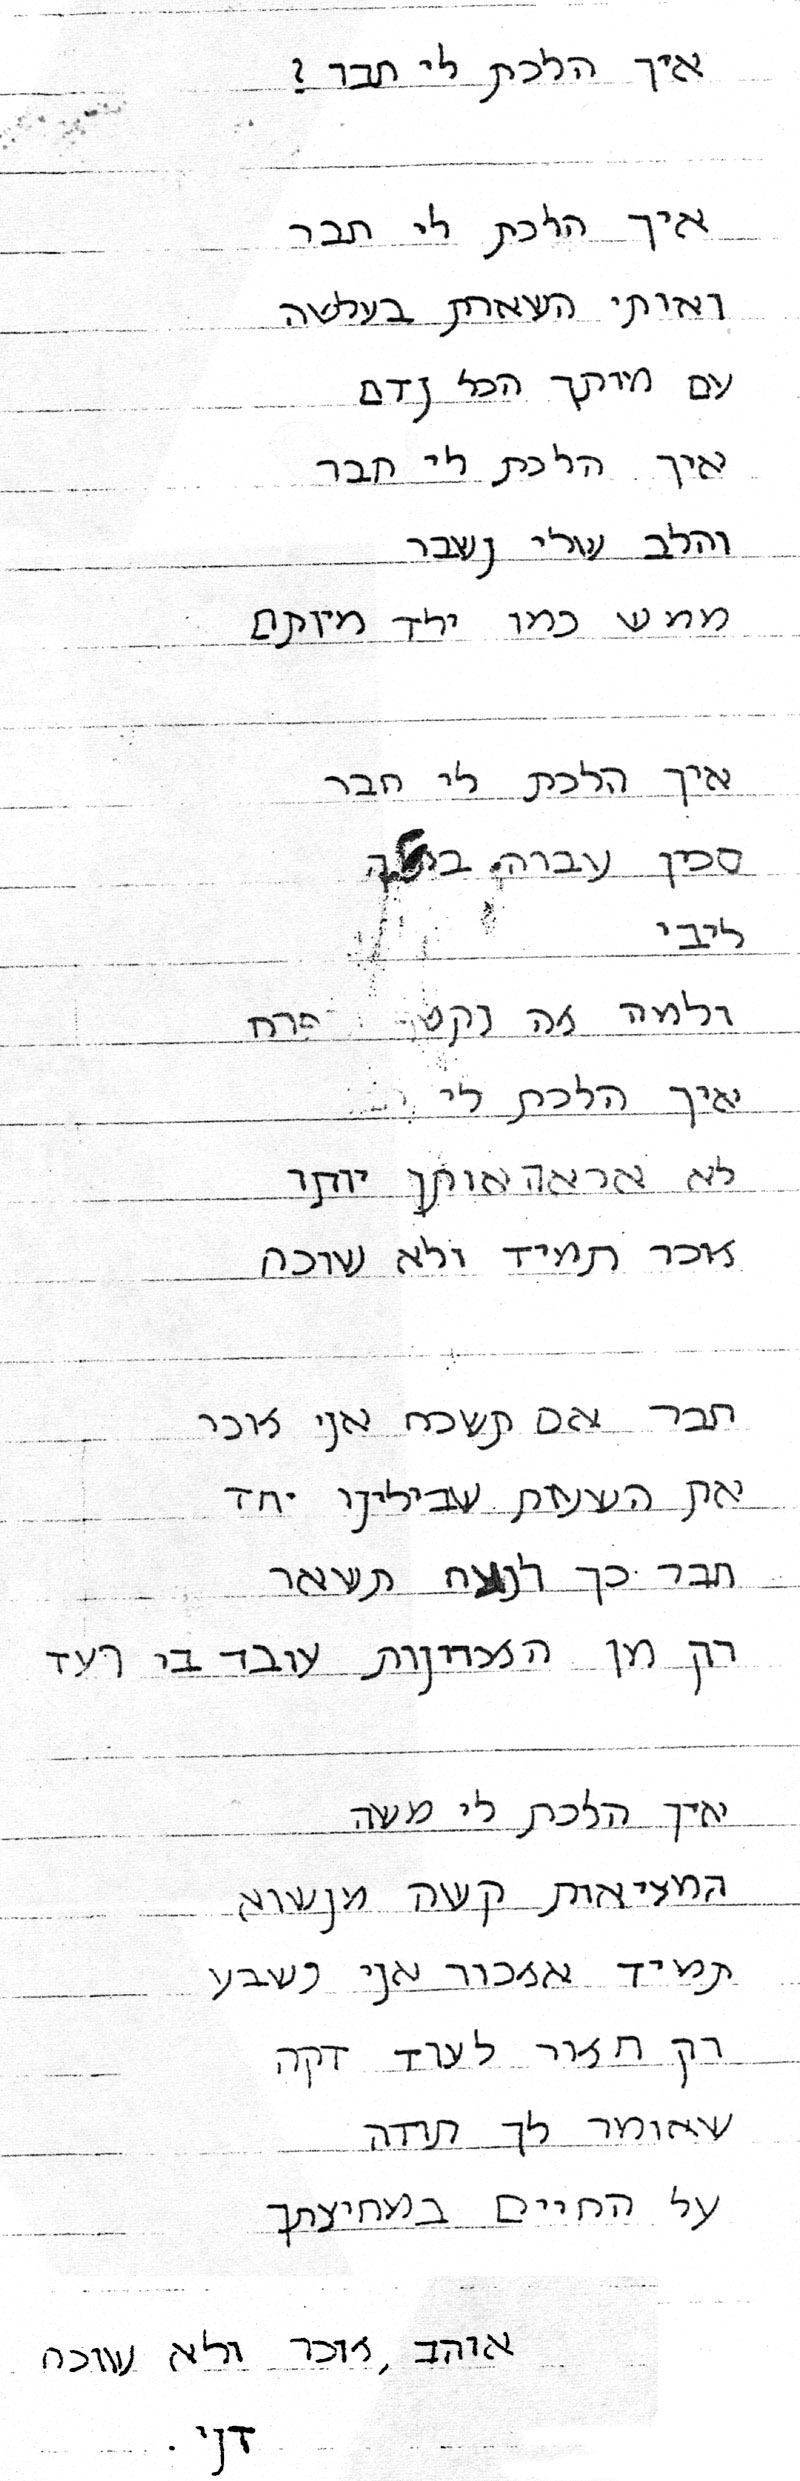 איך הלכת לי חבר ?
איך הלכת לי חבר
ואותי השארת בעלטה
עם מותך הכל נדם
איך הלכת לי חבר
והלב שלי נשבר
ממש כמו ילד מיותם
איך הלכת לי חבר
סכין עברה בתוך
ליבי
ולמה זה נקטף פרח
איך הלכת לי
לא אראה אותך יותר
זוכר תמיד ולא שוכח
חבר אם תשכח אני זוכר
את השעות שבילינו יחד
חבר כך לנצח תשאר
רק מן הזכרונות עובד בי רעד
איך הלכת לי משה
המציאות קשה מנשוא
תמיד אזכור אני נשבע
רק חזור לעוד דקה
שאומר לך תודה
על החיים במחיצתך
אוהב, זוכר ולא שוכח
דני .